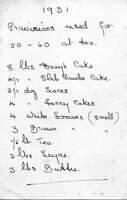 1931
Provisions used for
50 - 60 at tea.
8 lbs Boys' Cake
Slab Cake.
2½ doz Scones
4 " Fancy Cakes
4 White Loaves (small)
3 Brown "
½ lb Tea.
3 lbs Sugar.
3 lbs Butter.